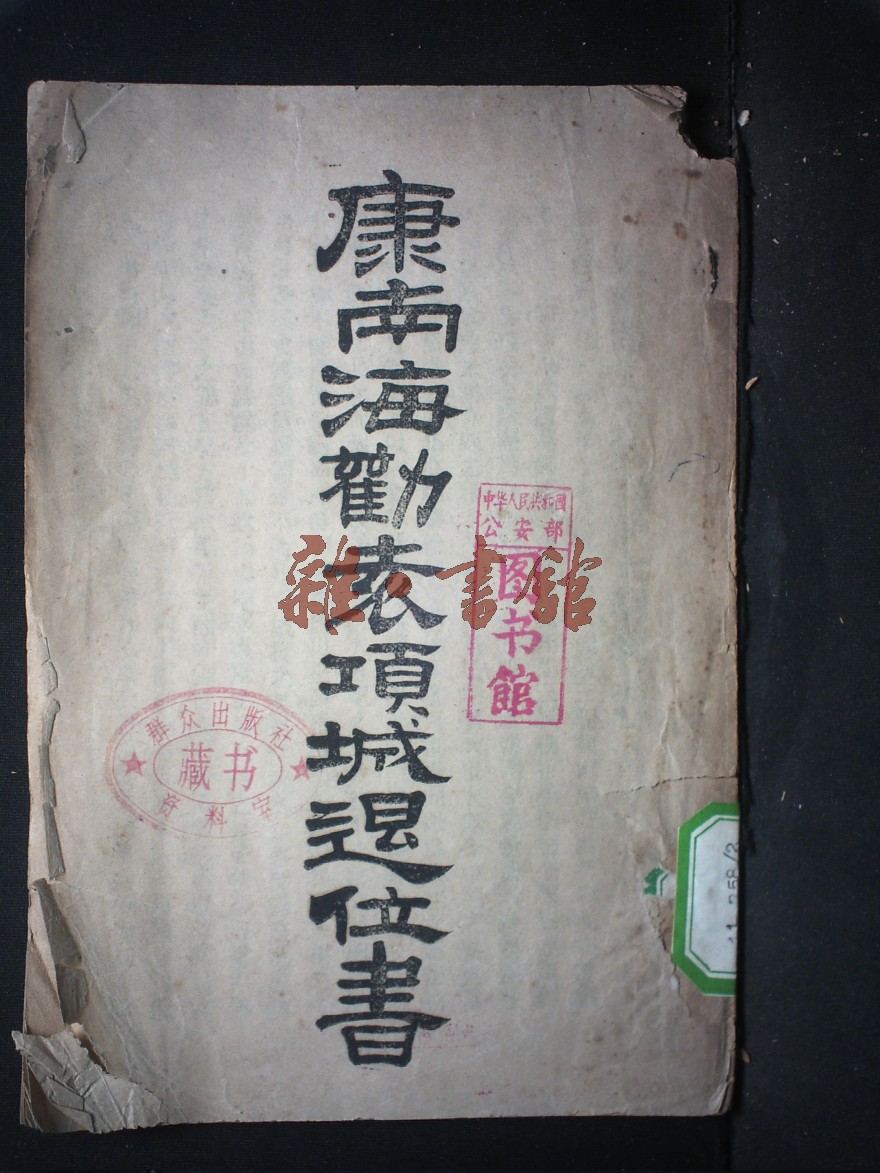 康南海勸袁項城退位書
中华人民共和國
公安部
图书馆
雜·書館
群众出版社
藏书
资料室